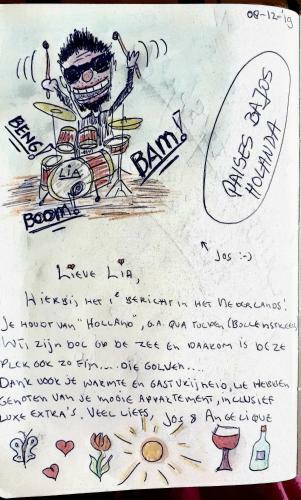 08-12-'19
BENG!
BAM!
LIA
BOOM!
PAISES BAJOS
HOLANDA
JOS :-)
LIEVE LIA,
HIERBIJ HET 1E BERICHT IN HET NEDERLANDS!
JE HOUDT VAN "HOLLAND", O.A. QUA TULPEN (BOLLENSTREEK)
WIJ ZIJN DOL OP DE ZEE EN DAAROM IS DEZE
PLEK OOK ZO FIJN.... DIE GOLVEN....
DANK VOOR JE WARMTE EN GASTVRIJHEID, WE HEBBEN
GENOTEN VAN JE MOOIE APPARTEMENT, INCLUSIEF
LUXE EXTRA'S. VEEL LIEFS, JOS & ANGELIQUE